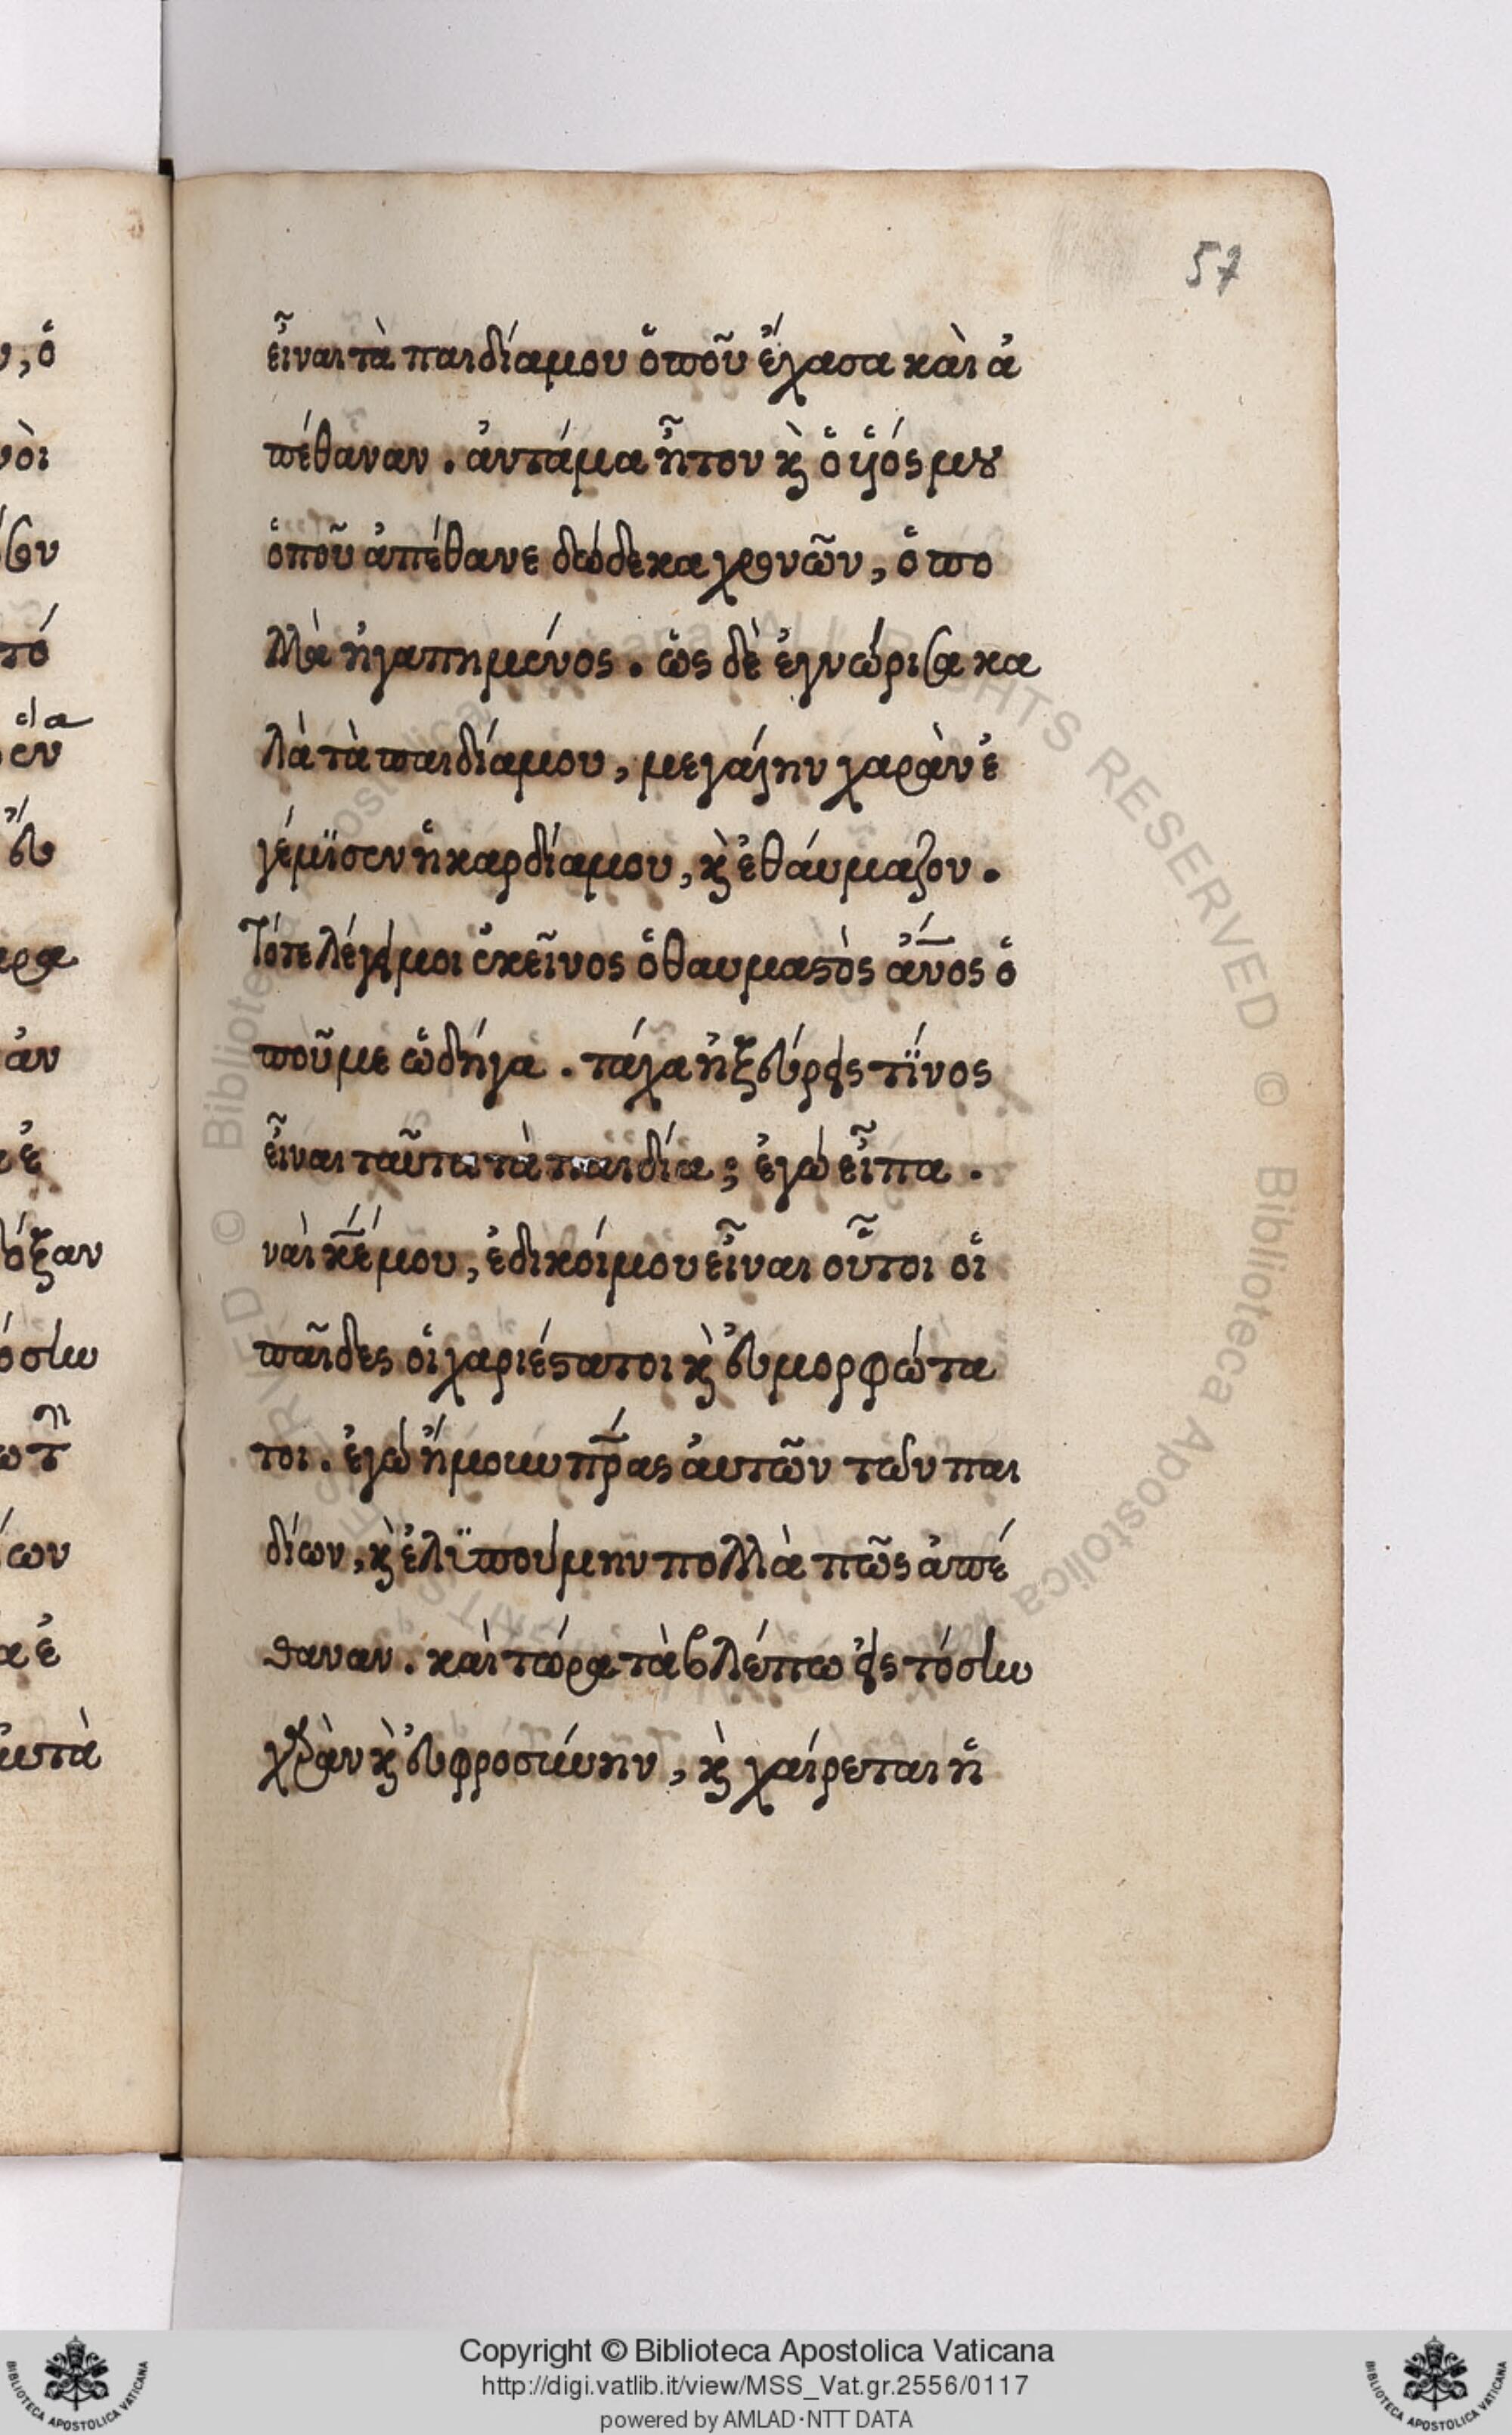 57
εἶναι τὰ παιδία μου ὁποῦ ἔχασα καὶ ἀ
πέθαναν. ἀντάμα ἦτον κ̀ ὁ ὑιός μου
ὁποῦ ἀπέθανε δώδεκα χρονῶν, ὁ πο
λλὰ ἠγαπημένος. ὡς δὲ ἐγνώρισα κα
λὰ τὰ παιδία μου, μεγάλην χαρὰν ἐ
γέμϊσεν ἡ καρδία μου, κ̀ ἐθάυμαζον.
Τότε λέγει μοι ἐκεῖνος ὁ θαυμαστὸς ἄνος ὁ
ποῦ με ὡδήγα. τάχα ἠξεύρεις τίνος
εἶναι ταῦτα τὰ παιδία; ἐγὼ εἶπα.
νὰι κέ μου, ἐδικοί μου εἶναι οὗτοι οἱ
παῖδες οἱ χαριέστατοι κ̀ ἐυμορφώτα
τοι. ἐγὼ ἤμουν πρας ἀυτῶν τῶν παι
δίων, κ̀ ἐλϋπούμην πολλὰ πῶς ἀπέ
θαναν. καὶ τώρα τὰ βλέπω εἰς τόσην
χαρὰν κ̀ ἐυφροσύνην, κ̀ χαίρεται ἡ
Copyright © Biblioteca Apostolica Vaticana
http://digi.vatlib.it/view/MSS_Vat.gr.2556/0117
powered by AMLAD·NTT DATA